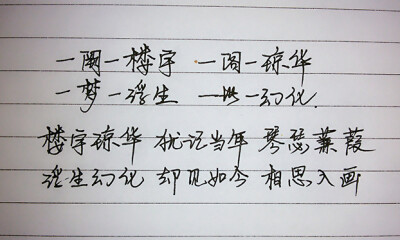 一阕一楼宇 一阁一琼华
一梦一浮生 一世一幻化
楼宇琼华 犹记当年 琴瑟蒹葭
浮生幻化 却见如今 相思入画